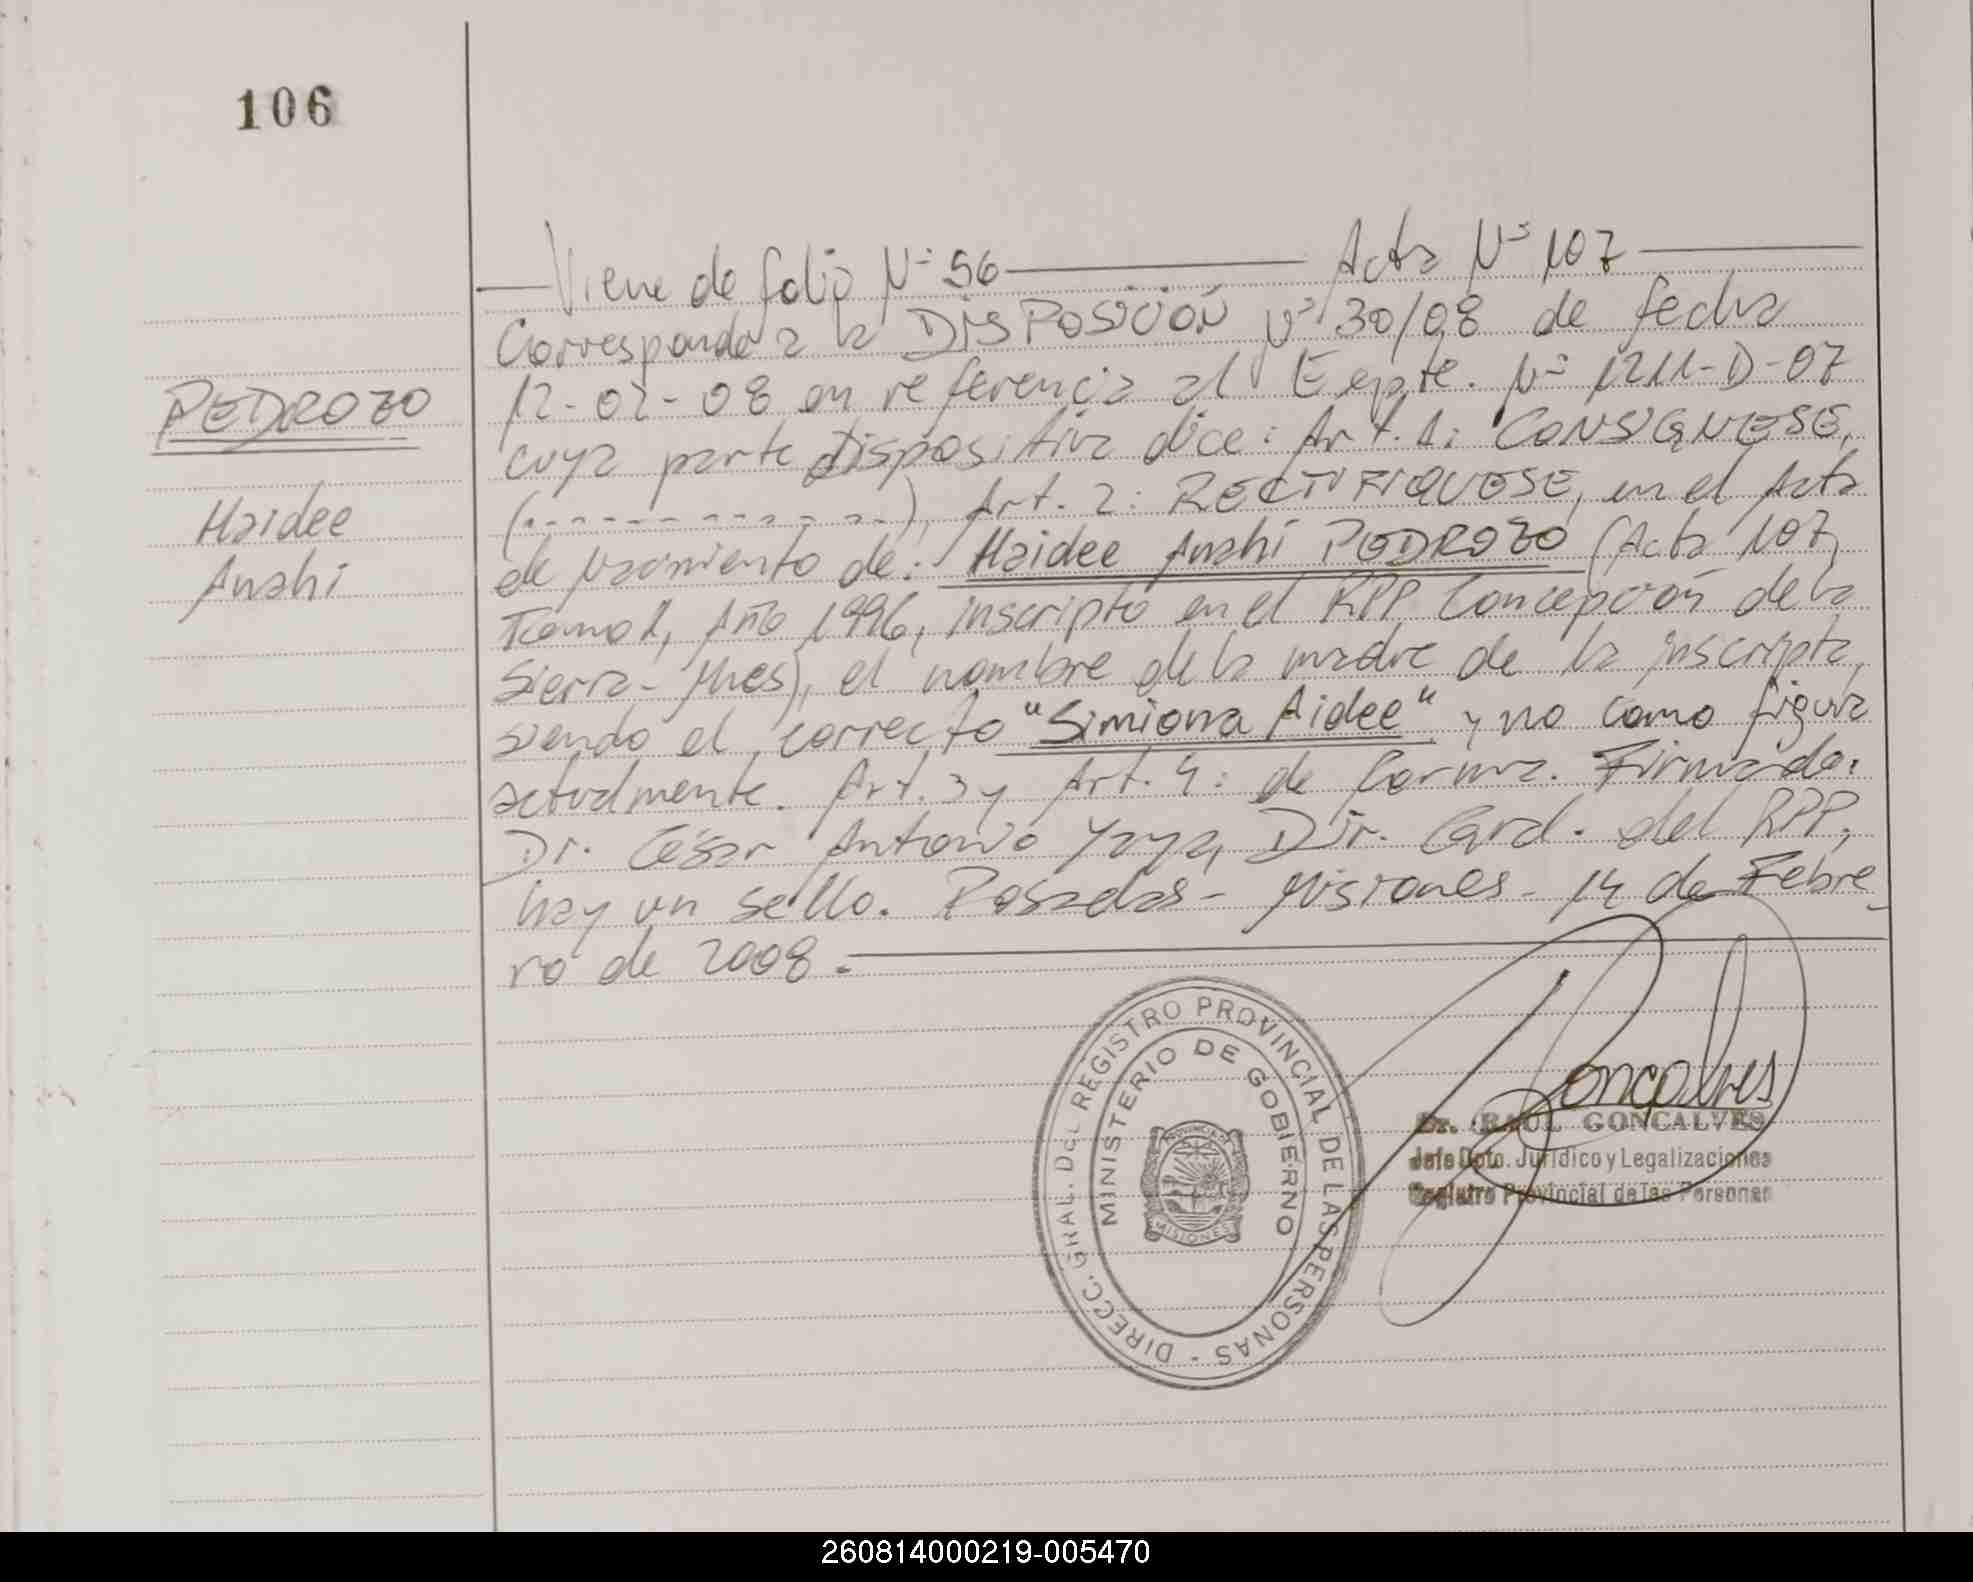 106
Viene de folio Nº 56 Acta Nº 107
Corresponde a la DISPOSICIÓN Nº 30/08 de fecha
12-02-08 en referencia al Expte. Nº 1211-D-07
cuya parte Dispositiva dice: Art. 1: CONSIGNESE,
(------------), Art. 2: RECTIFIQUESE, en el Acta
de Nacimiento de: Haidee Anahi PEDROZO (Acta 107,
Tomo 1, Año 1996, inscripto en el RPP, Concepción de la
Sierra- Mnes), el nombre de la madre de la inscripta,
siendo el correcto "Simiona Aidee" y no como figura
actualmente. Art. 3 y Art. 4: de forma. Firmado:
Dr. César Antonio Yaya, Dir. Gral. del RPP,
hay un sello. Posadas- Misiones- 14 de Febre-
ro de 2008.-
PEDROZO
Haidee
Anahi
DIRECC. GRAL. DEL REGISTRO PROVINCIAL DE LAS PERSONAS -
MINISTERIO DE GOBIERNO
PROVINCIA DE
MISIONES
Goncalves
Dr. RAUL GONCALVES
Jefe Dpto. Jurídico y Legalizaciones
Registro Provincial de las Personas
260814000219-005470